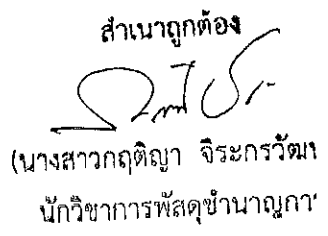 สำเนาถูกต้อง
(นางสาวกฤติญา จิระกรวัฒ
นักวิชาการพัสดุชำนาญกา